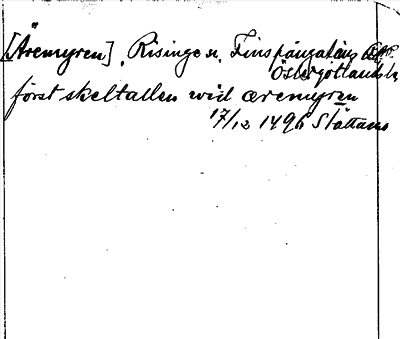 [Äremyren], Risinge sn, Finspångaläns
Östergötlands l.
först skeltallen wid æremyren
17/12 1496